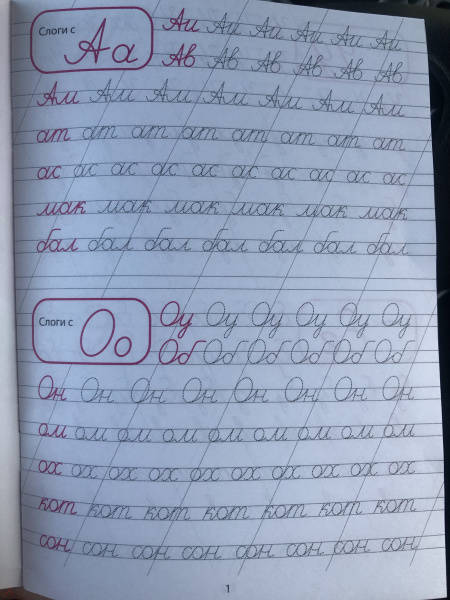 Слоги с Аа
Аи Аи Аи Аи Аи Аи
Ав Ав Ав Ав Ав Ав
Ам Ам Ам Ам Ам Ам Ам
ат ат ат ат ат ат ат ат
ас ас ас ас ас ас ас ас ас ас
мак мак мак мак мак мак
бал бал бал бал бал бал бал
Слоги с Оо
Оу Оу Оу Оу Оу Оу
Об Об Об Об Об Об
Он Он Он Он Он Он Он Он
ом ом ом ом ом ом ом ом ом
ох ох ох ох ох ох ох ох ох ох
кот кот кот кот кот кот кот
сон сон сон сон сон сон сон сон
1